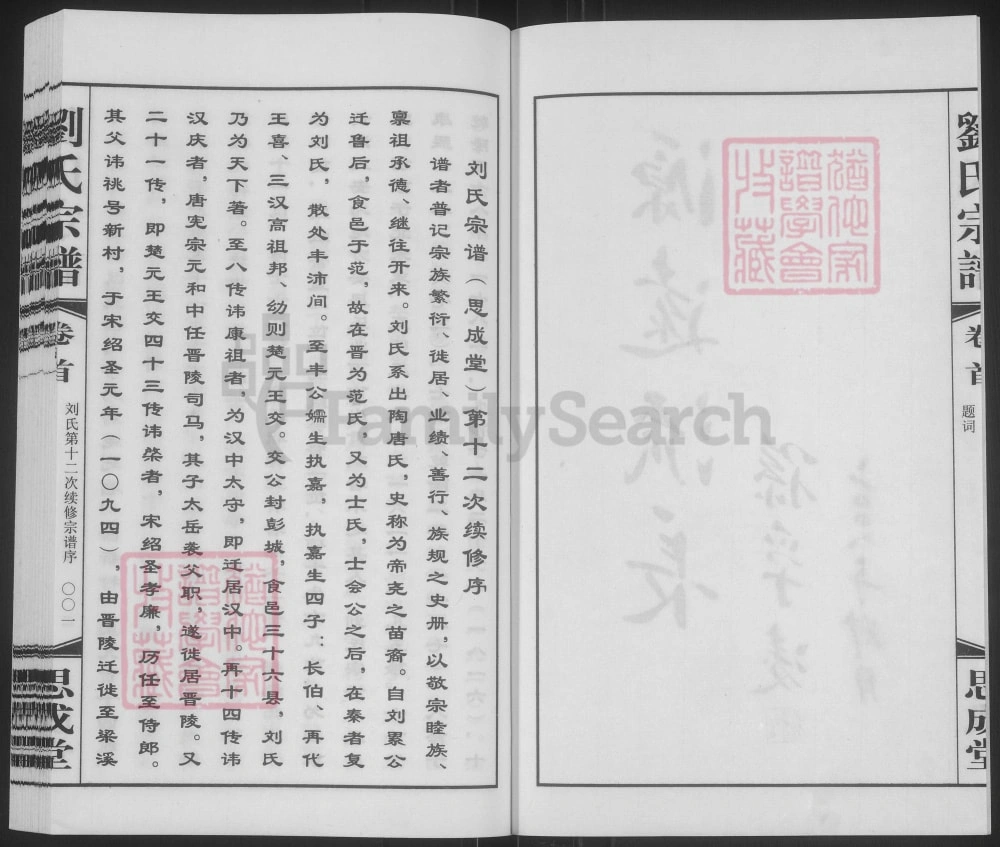 劉氏宗譜
卷首
题词
思成堂
源远流长
猶他家譜學會收藏
刘氏宗谱（思成堂）第十二次续修序
谱者普记宗族繁衍、徙居、业绩、善行、族规之史册，以敬宗睦族、
禀祖承德、继往开来。刘氏系出陶唐氏，史称为帝尧之苗裔。自刘累公
迁鲁后，食邑于范，故在晋为范氏，又为士氏，士会公之后，在秦者复
为刘氏，散处丰沛间。至丰公嬬生执嘉，执嘉生四子：长伯、再代
王喜、三汉高祖邦、幼则楚元王交。交公封彭城，食邑三十六县，刘氏
乃为天下著。至八传讳康祖者，为汉中太守，即迁居汉中。再十四传讳
汉庆者，唐宪宗元和中任晋陵司马，其子太岳袭父职，遂徙居晋陵。又
二十一传，即楚元王交四十三传讳棨者，宋绍圣孝廉，历任至侍郎。
其父讳祧号新村，于宋绍圣元年（一〇九四），由晋陵迁徙至梁溪
猶他家譜學會收藏
劉氏宗譜
卷首
刘氏第十二次续修宗谱序
〇〇一
思成堂
FamilySearch